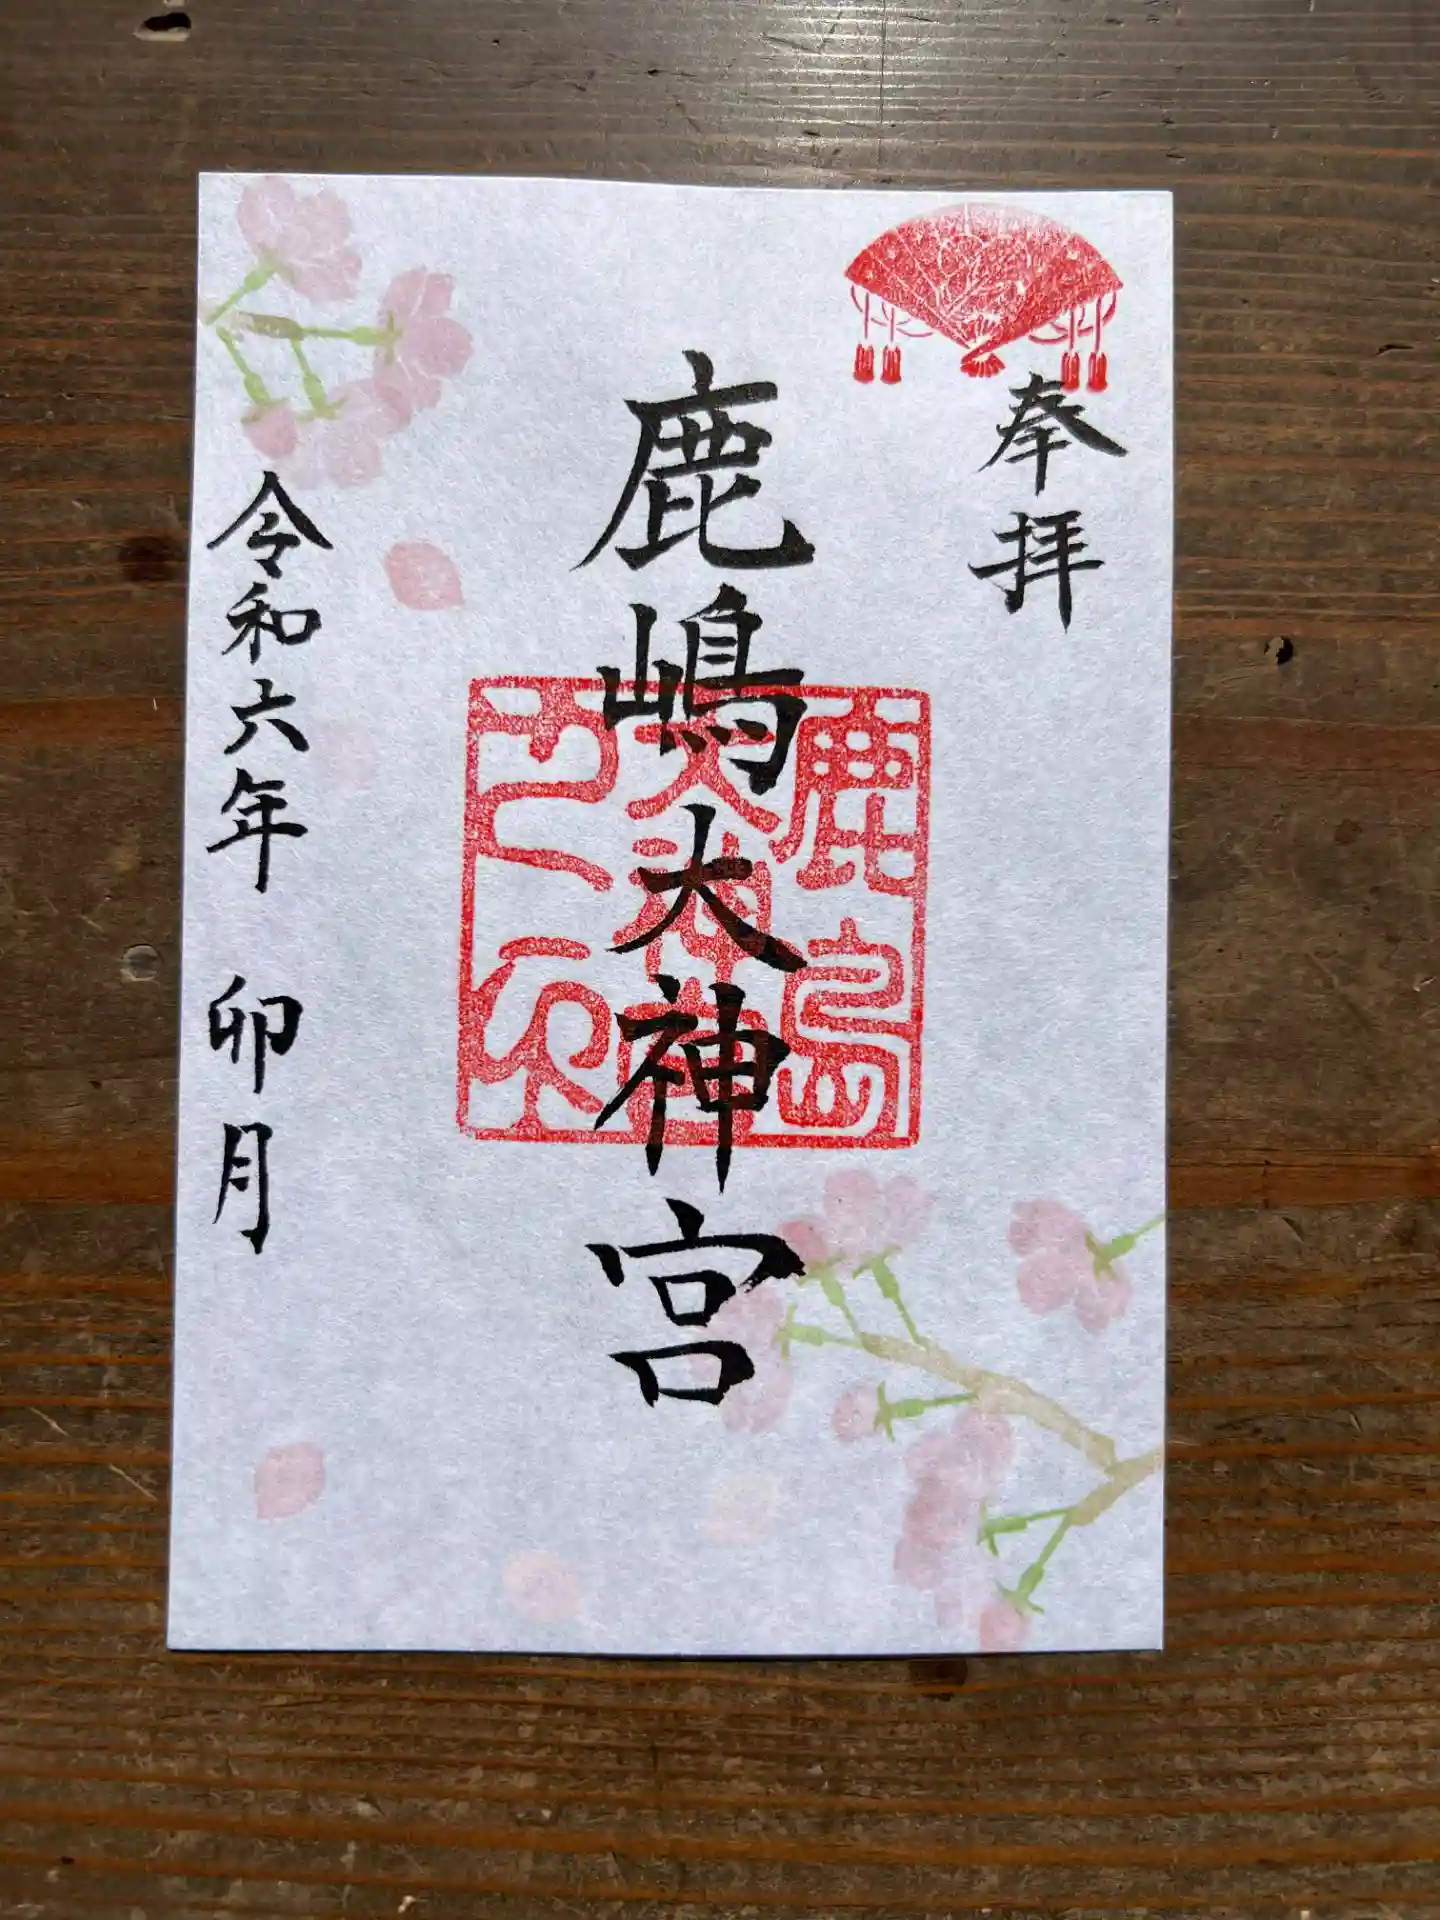 奉拝
鹿嶋大神宮
鹿島
大神宮
令和六年 卯月